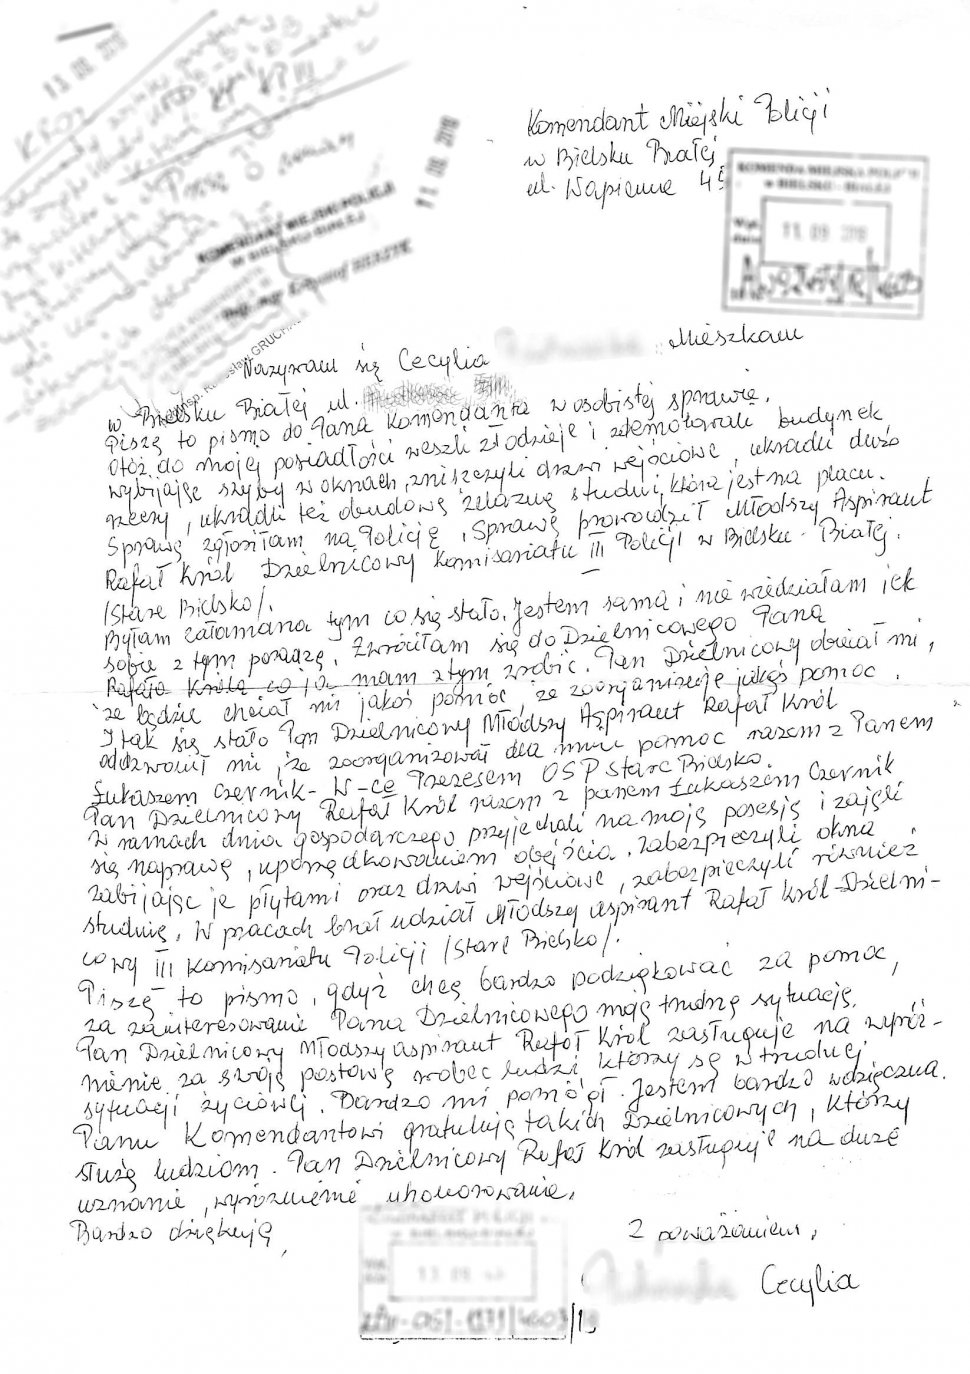 Komendant Miejski Policji
w Bielsku Białej
ul. Wapienna 45
KOMENDA MIEJSKA POLICJI
w BIELSKU-BIAŁEJ
11 09
KOMENDANT MIEJSKI POLICJI
W BIELSKU-BIAŁEJ
Nazywam się Cecylia Mieszkam
w Bielsku Białej ul.
Piszę to pismo do Pana Komendanta w osobistej sprawie.
Otóż do mojej posiadłości weszli złodzieje i zdemolowali budynek
wybijając szyby w oknach, zniszczyli drzwi wejściowe, ukradli dużo
rzeczy, ukradli też obudowę żelazną studni, która jest na placu.
Sprawę zgłosiłam na Policję, Sprawę prowadził Młodszy Aspirant
Rafał Król Dzielnicowy Komisariatu III Policji w Bielsku-Białej.
/Stare Bielsko/.
Byłam załamana tym co się stało. Jestem sama i nie wiedziałam jak
sobie z tym poradzę. Zwróciłam się do Dzielnicowego Pana
Rafała Króla co ja mam z tym zrobić. Pan Dzielnicowy obiecał mi,
że będzie chciał mi jakoś pomóc, że zoorganizuje jakąś pomoc.
I tak się stało Pan Dzielnicowy Młodszy Aspirant Rafał Król
oddzwonił mi, że zoorganizował dla mnie pomoc razem z Panem
Łukaszem Czernik - W-ce Prezesem OSP Stare Bielsko.
Pan Dzielnicowy Rafał Król razem z panem Łukaszem Czernik
w ramach dnia gospodarczego przyjechali na moją posesję i zajęli
się naprawą, uporządkowaniem obejścia. Zabezpieczyli okna
zabijając je płytami oraz drzwi wejściowe, zabezpieczyli również
studnię. W pracach brał udział Młodszy aspirant Rafał Król-Dzielni-
cowy III Komisariatu Policji /Stare Bielsko/.
Piszę to pismo, gdyż chcę bardzo podziękować za pomoc,
za zainteresowanie Pana Dzielnicowego moją trudną sytuacją.
Pan Dzielnicowy Młodszy aspirant Rafał Król zasługuje na wyróż-
nienie za swoją postawę wobec ludzi którzy są w trudnej
sytuacji życiowej. Bardzo mi pomógł. Jestem bardzo wdzięczna.
Panu Komendantowi gratuluję takich Dzielnicowych, którzy
służą ludziom. Pan Dzielnicowy Rafał Król zasługuje na duże
uznanie, wyróżnienie uhonorowanie.
Bardzo dziękuję,
Z poważaniem,
Cecylia